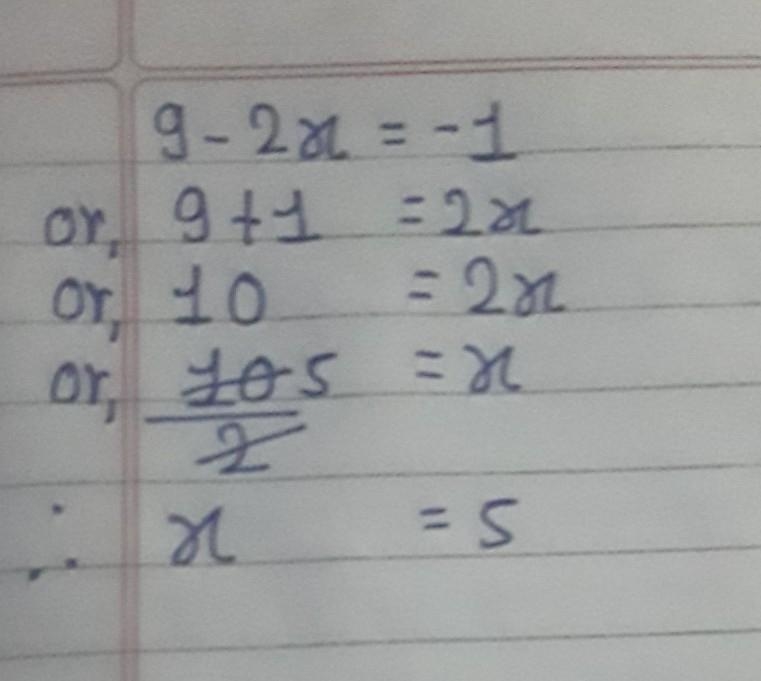 9 - 2x = -1
or, 9 + 1 = 2x
or, 10 = 2x
or, 10 5 = x
2
∴ x = 5